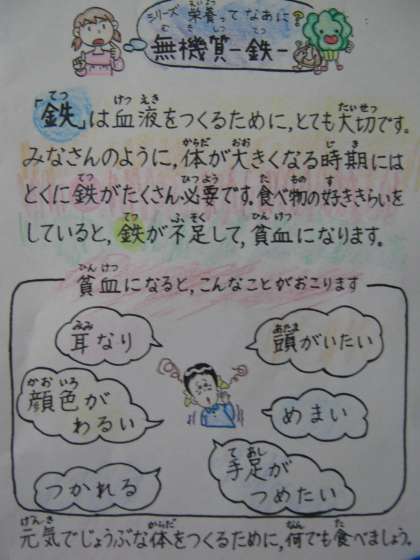 シリーズ 栄養ってなあに?
無機質ー鉄ー
「鉄」は血液をつくるために,とても大切です。
みなさんのように,体が大きくなる時期には
とくに鉄がたくさん必要です。食べ物の好ききらいを
していると,鉄が不足して,貧血になります。
貧血になると,こんなことがおこります
耳なり
頭がいたい
顔色が
わるい
めまい
つかれる
手足が
つめたい
元気でじょうぶな体をつくるために,何でも食べましょう。